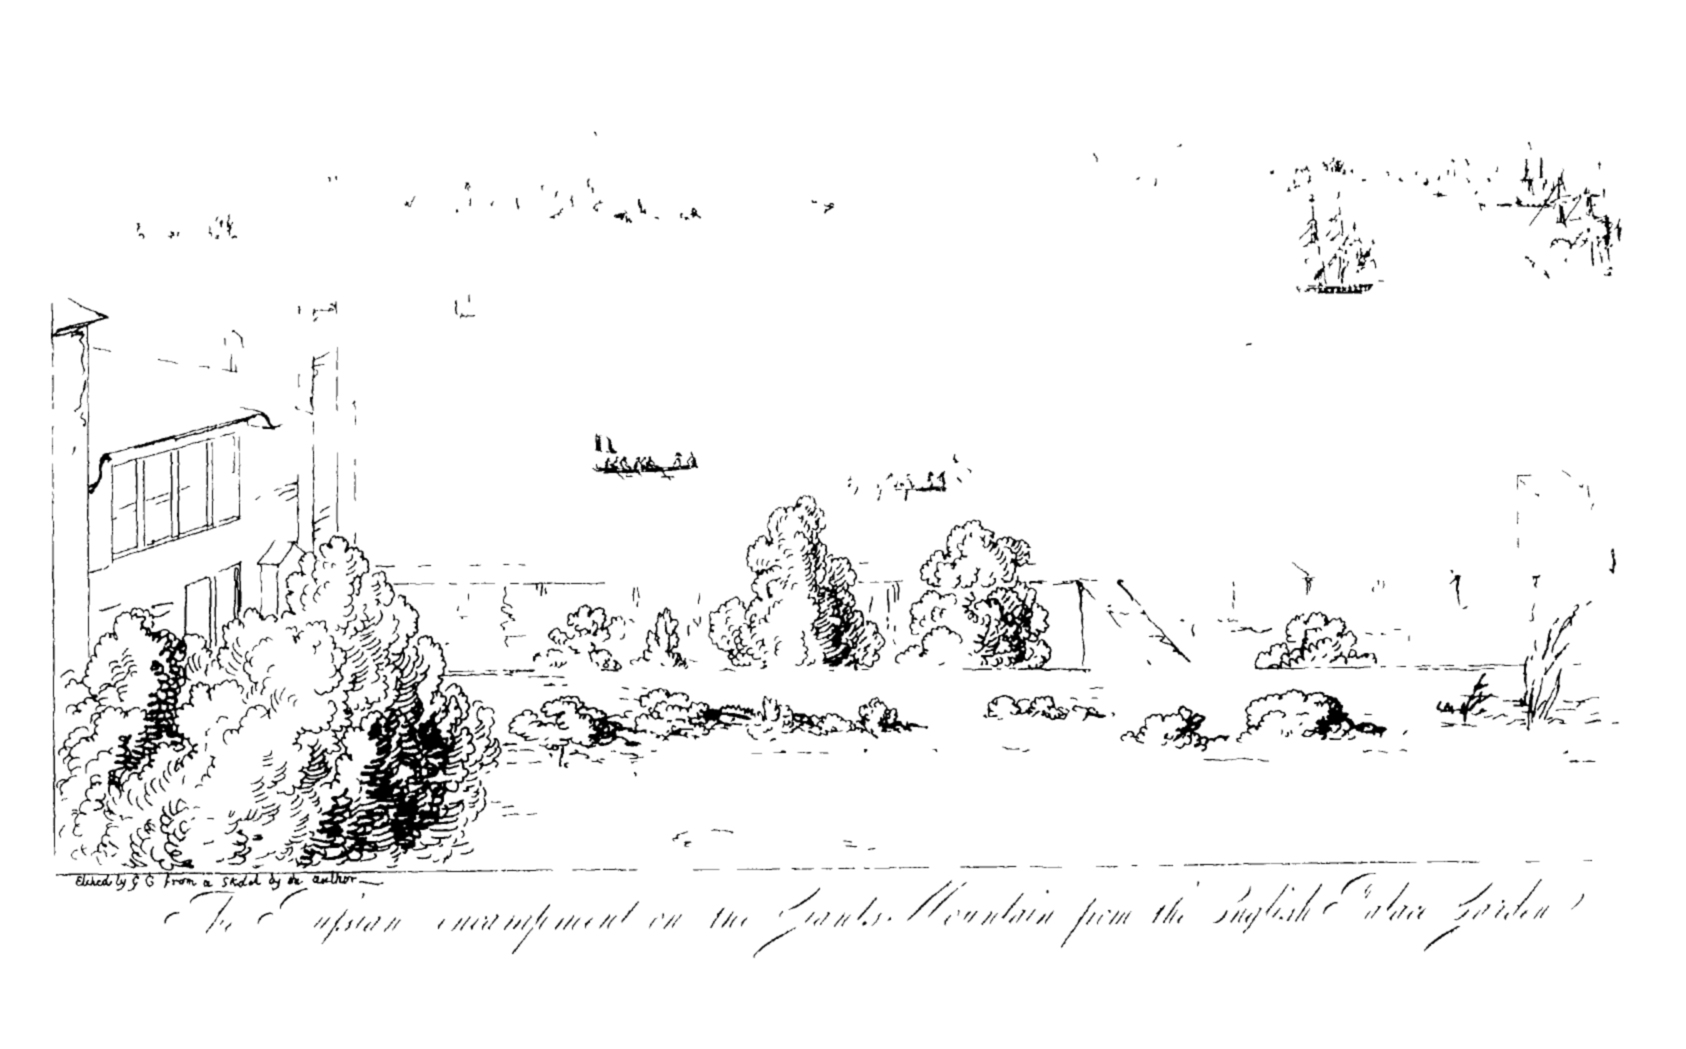 Etched by G C from a Sketch by the author
The Russian encampment on the Giants Mountain from the English Palace Garden